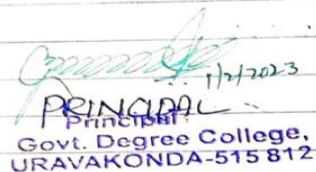 1/2/2023
PRINCIPAL
Principal
Govt. Degree College,
URAVAKONDA-515 812